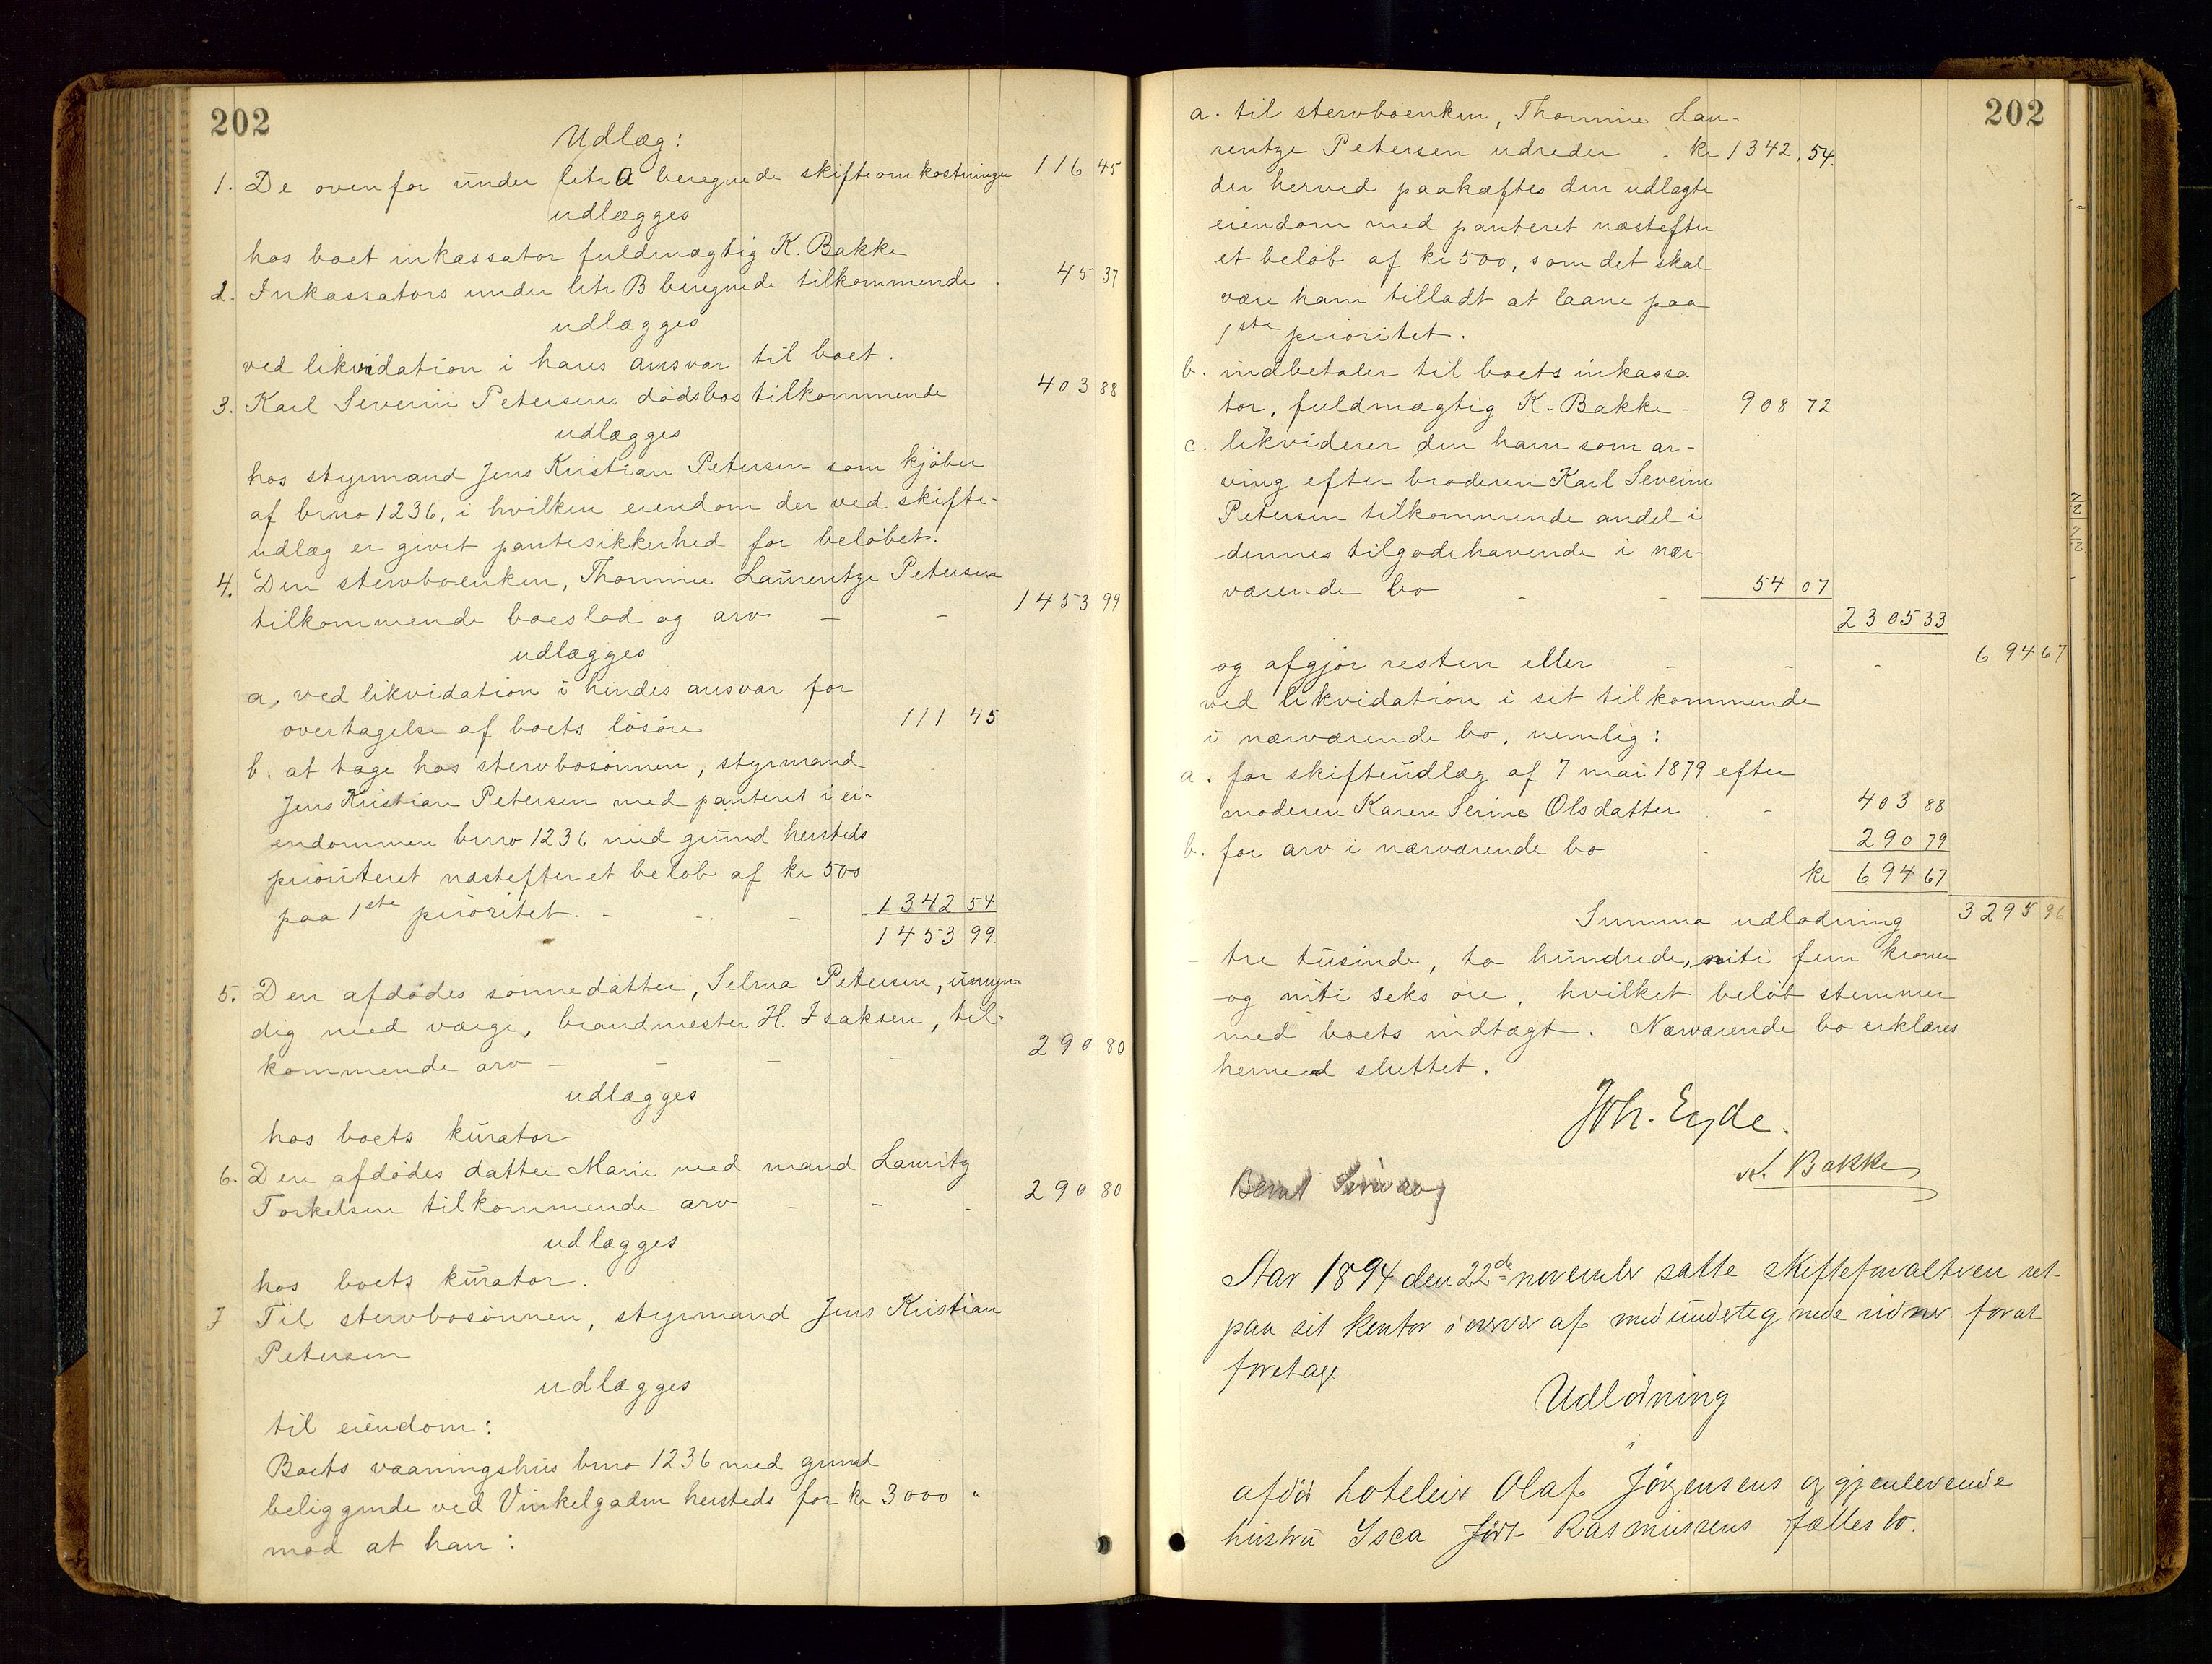 202
Udlæg:
1. De ovenfor under litr A beregnede skifteomkostninger 116 45
udlægges
hos boet inkassator fuldmægtig K. Bakke
2. Inkassators under litr B beregnede tilkommende . 45 37
udlægges
ved likvidation i hans ansvar til boet.
3. Karl Severin Petersens dödsbos tilkommende 403 88
udlægges
hos styrmand Jens Kristian Petersen som kjöber
af brno 1236, i hvilken eiendom der ved skifte-
udlæg er givet pantesikkerhed for belöbet.
4. Den stervboenken, Thomine Laurentze Petersen
tilkommende boeslod og arv - - 1453 99
udlægges
a. ved likvidation i hendes ansvar for
overtagelse af boets lösöre 111 45
b. at tage hos stervbosönnen, styrmand
Jens Kristian Petersen med panteret i ei-
endommen brno 1236 med grund hersteds
prioriteret næstefter et belöb af kr 500
paa 1ste prioritet. - - - 1342 54
1453 99.
5. Den afdödes sönnedatter, Selma Petersen, umyn-
dig med værge, brandmester H. Isaksen, til-
kommende arv - - - - 290 80
udlægges
hos boets kurator
6. Den afdödes datter Marie med mand Lauritz
Torkelsen tilkommende arv - - - 290 80
udlægges
hos boets kurator.
7 Til stervbosönnen, styrmand Jens Kristian
Petersen
udlægges
til eiendom:
Boets vaaningshus brno 1236 med grund
beliggende ved Vinkelgaden hersteds for kr 3000 "
mod at han:
202
a. til stervboenken, Thomine Lau-
rentze Petersen udreder - kr 1342,54.
der herved paahæftes den udlagte
eiendom med panteret næstefter
et belöb af kr 500, som det skal
være ham tilladt at laane paa
1ste prioritet.
b. indbetaler til boets inkassa
tor, fuldmægtig K. Bakke - 908 72
c. likviderer den ham som ar-
ving efter broderen Karl Severin
Petersen tilkommende andel i
dennes tilgodehavende i nær-
værende bo - - 54 07
2305 33
og afgjör resten eller - - - 694 67
ved likvidation i sit tilkommende
i nærværende bo, nemlig:
a. for skifteudlæg af 7 mai 1879 efter
moderen Karen Serine Olsdatter - 403 88
b. for arv i nærværende bo 290 79
kr 694 67
Summa udlodning 3295 96
- tre tusinde, to hundrede, niti fem kroner
og niti seks öre, hvilket belöb stemmer
med boets indtægt. Nærværende bo erklæres
hermed sluttet.
Joh. Eyde.
K. Bakke
Bernt
Aar 1894 den 22de november satte skifteforvalteren ret
paa sit kontor i nærvær af medundertegnede vidner for at
foretage
Udlodning
i
afdöd hoteleier Olaf Jörgensens og gjenlevende
hustru Isca född Rasmussens fællesbo.